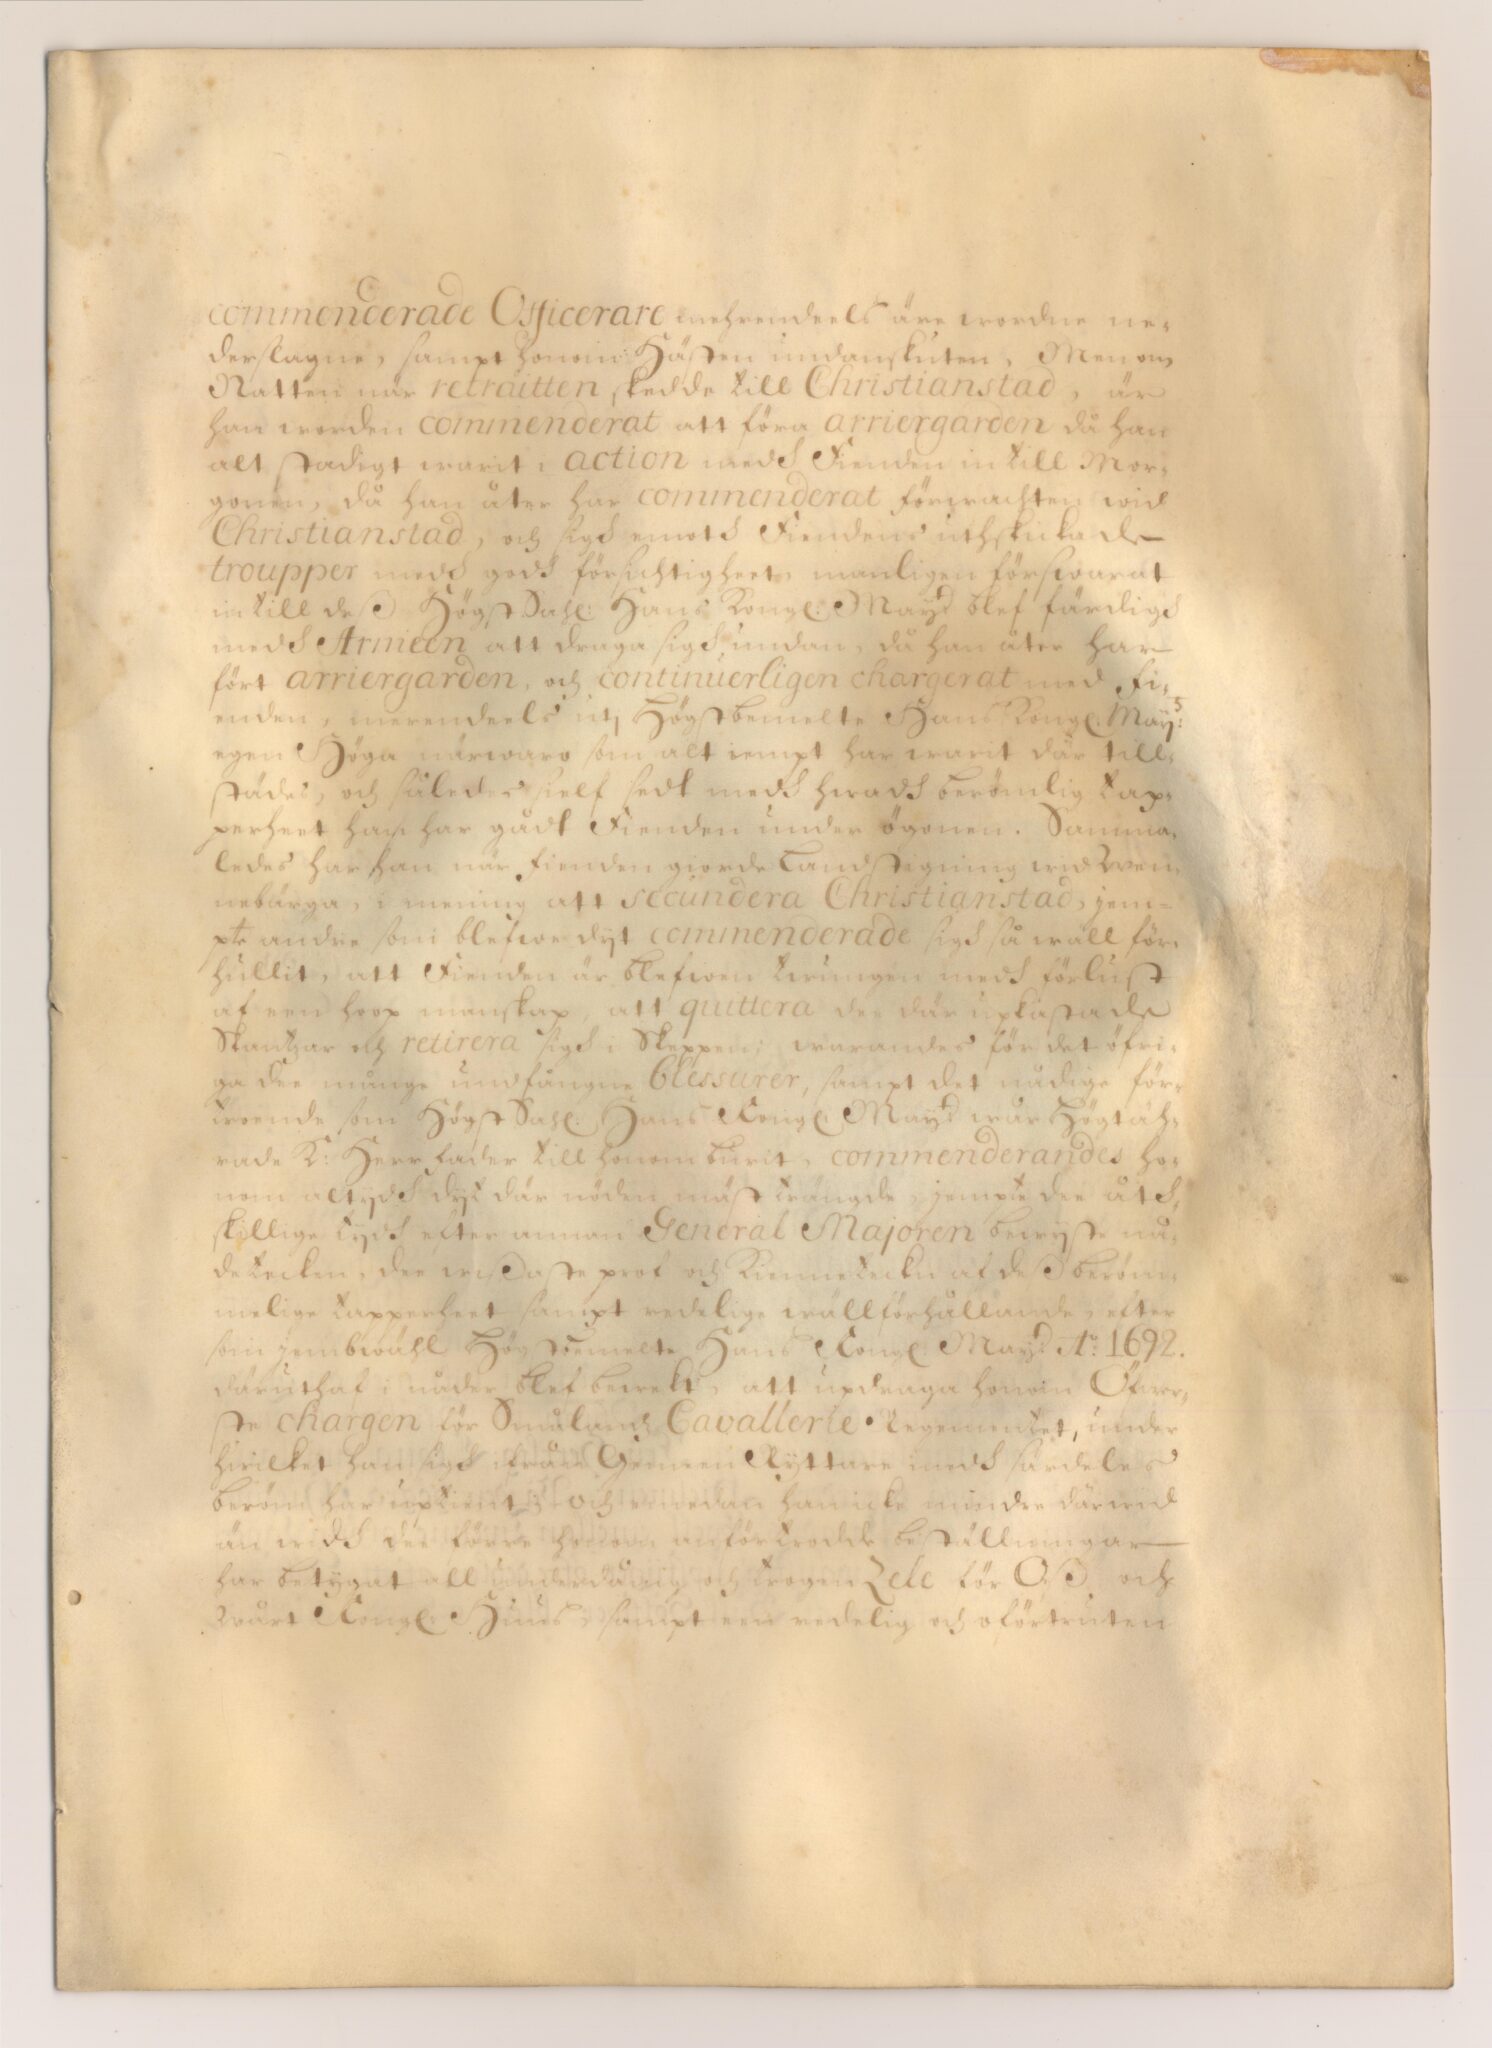 commenderade Officerare mehrendeels äre wordne ne-
derslagne, sampt honom Hästen undanskuten, Men om
Natten när retraitten skedde till Christianstad, är
han worden commenderat att föra arriergarden då han
alt stadigt warit i action medh Fienden in till Mor-
gonen, då han åter har commenderat förwachten wid
Christianstad, och sigh emoth Fiendens uthskickade
troupper medh godh försichtigheet, manligen förswarat
in till dess Högst Sahl: Hans Kongl: May:tt blef färdigh
medh Armeen att draga sigh undan, då han åter har
fört arriergarden, och continuerligen chargerat med Fi-
enden, merendeels uti Högstbemelte Hans Kongl: May:tz
egen Höga närwaro som alt jempt har warit där till-
städes, och således sielf sedt medh hwadh berömlig tap-
perheet han har gådt Fienden under ögonen. Samma-
ledes har han när Fienden giorde Landstigning wid Wen-
nebärga, i mening att secundera Christianstad, jem-
pte andre som blefwe dyt commenderade sigh så wäll för-
hullit, att Fienden är blefwen twungen medh förlust
af een hoop manskap, att quittera dee där upkastade
Skantzar och retirera sigh i Skeppen; warandes för det öfri-
ga dee månge undfångne blessurer, sampt det nådige för-
troende som Högst Sahl: Hans Kongl: May:tt wår Högtäh-
rade K: Herr Fader till honom burit, commenderandes ho-
nom altydh dyt där nöden mäst trängde, jempte dee åth-
skillige tydh efter annan General Majoren bewyste nå-
detecken, dee wissaste prof och Kiennetecken af dess beröm-
melige tapperheet sampt redelige wällförhållande, efter
som jembwähl Högstbemelte Hans Kongl: May:tt A:o 1692.
däruthaf i nåder blef bewekt, att updraga honom Öfwer-
ste chargen för Smålandz Cavallerie Regementet, under
hwilket han sigh ifrån Gemeen Ryttare medh särdeles
beröm har uptient; och emedan han icke mindre därwid
än widh dee förre honom anförtrodde beställningar
har betygat all underdånig och trogen Zele för Oss och
Wårt Kongl: Huus, sampt een redelig och oförtruten